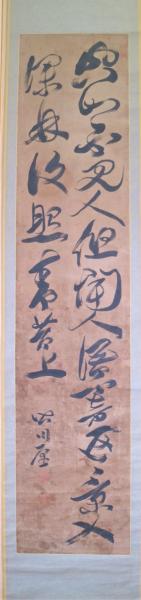 空山不見人但聞人語響返景入
深林復照青苔上